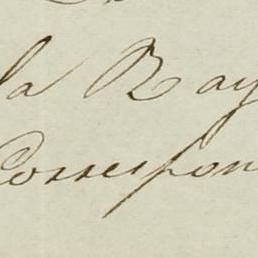 la Ray
Correspon